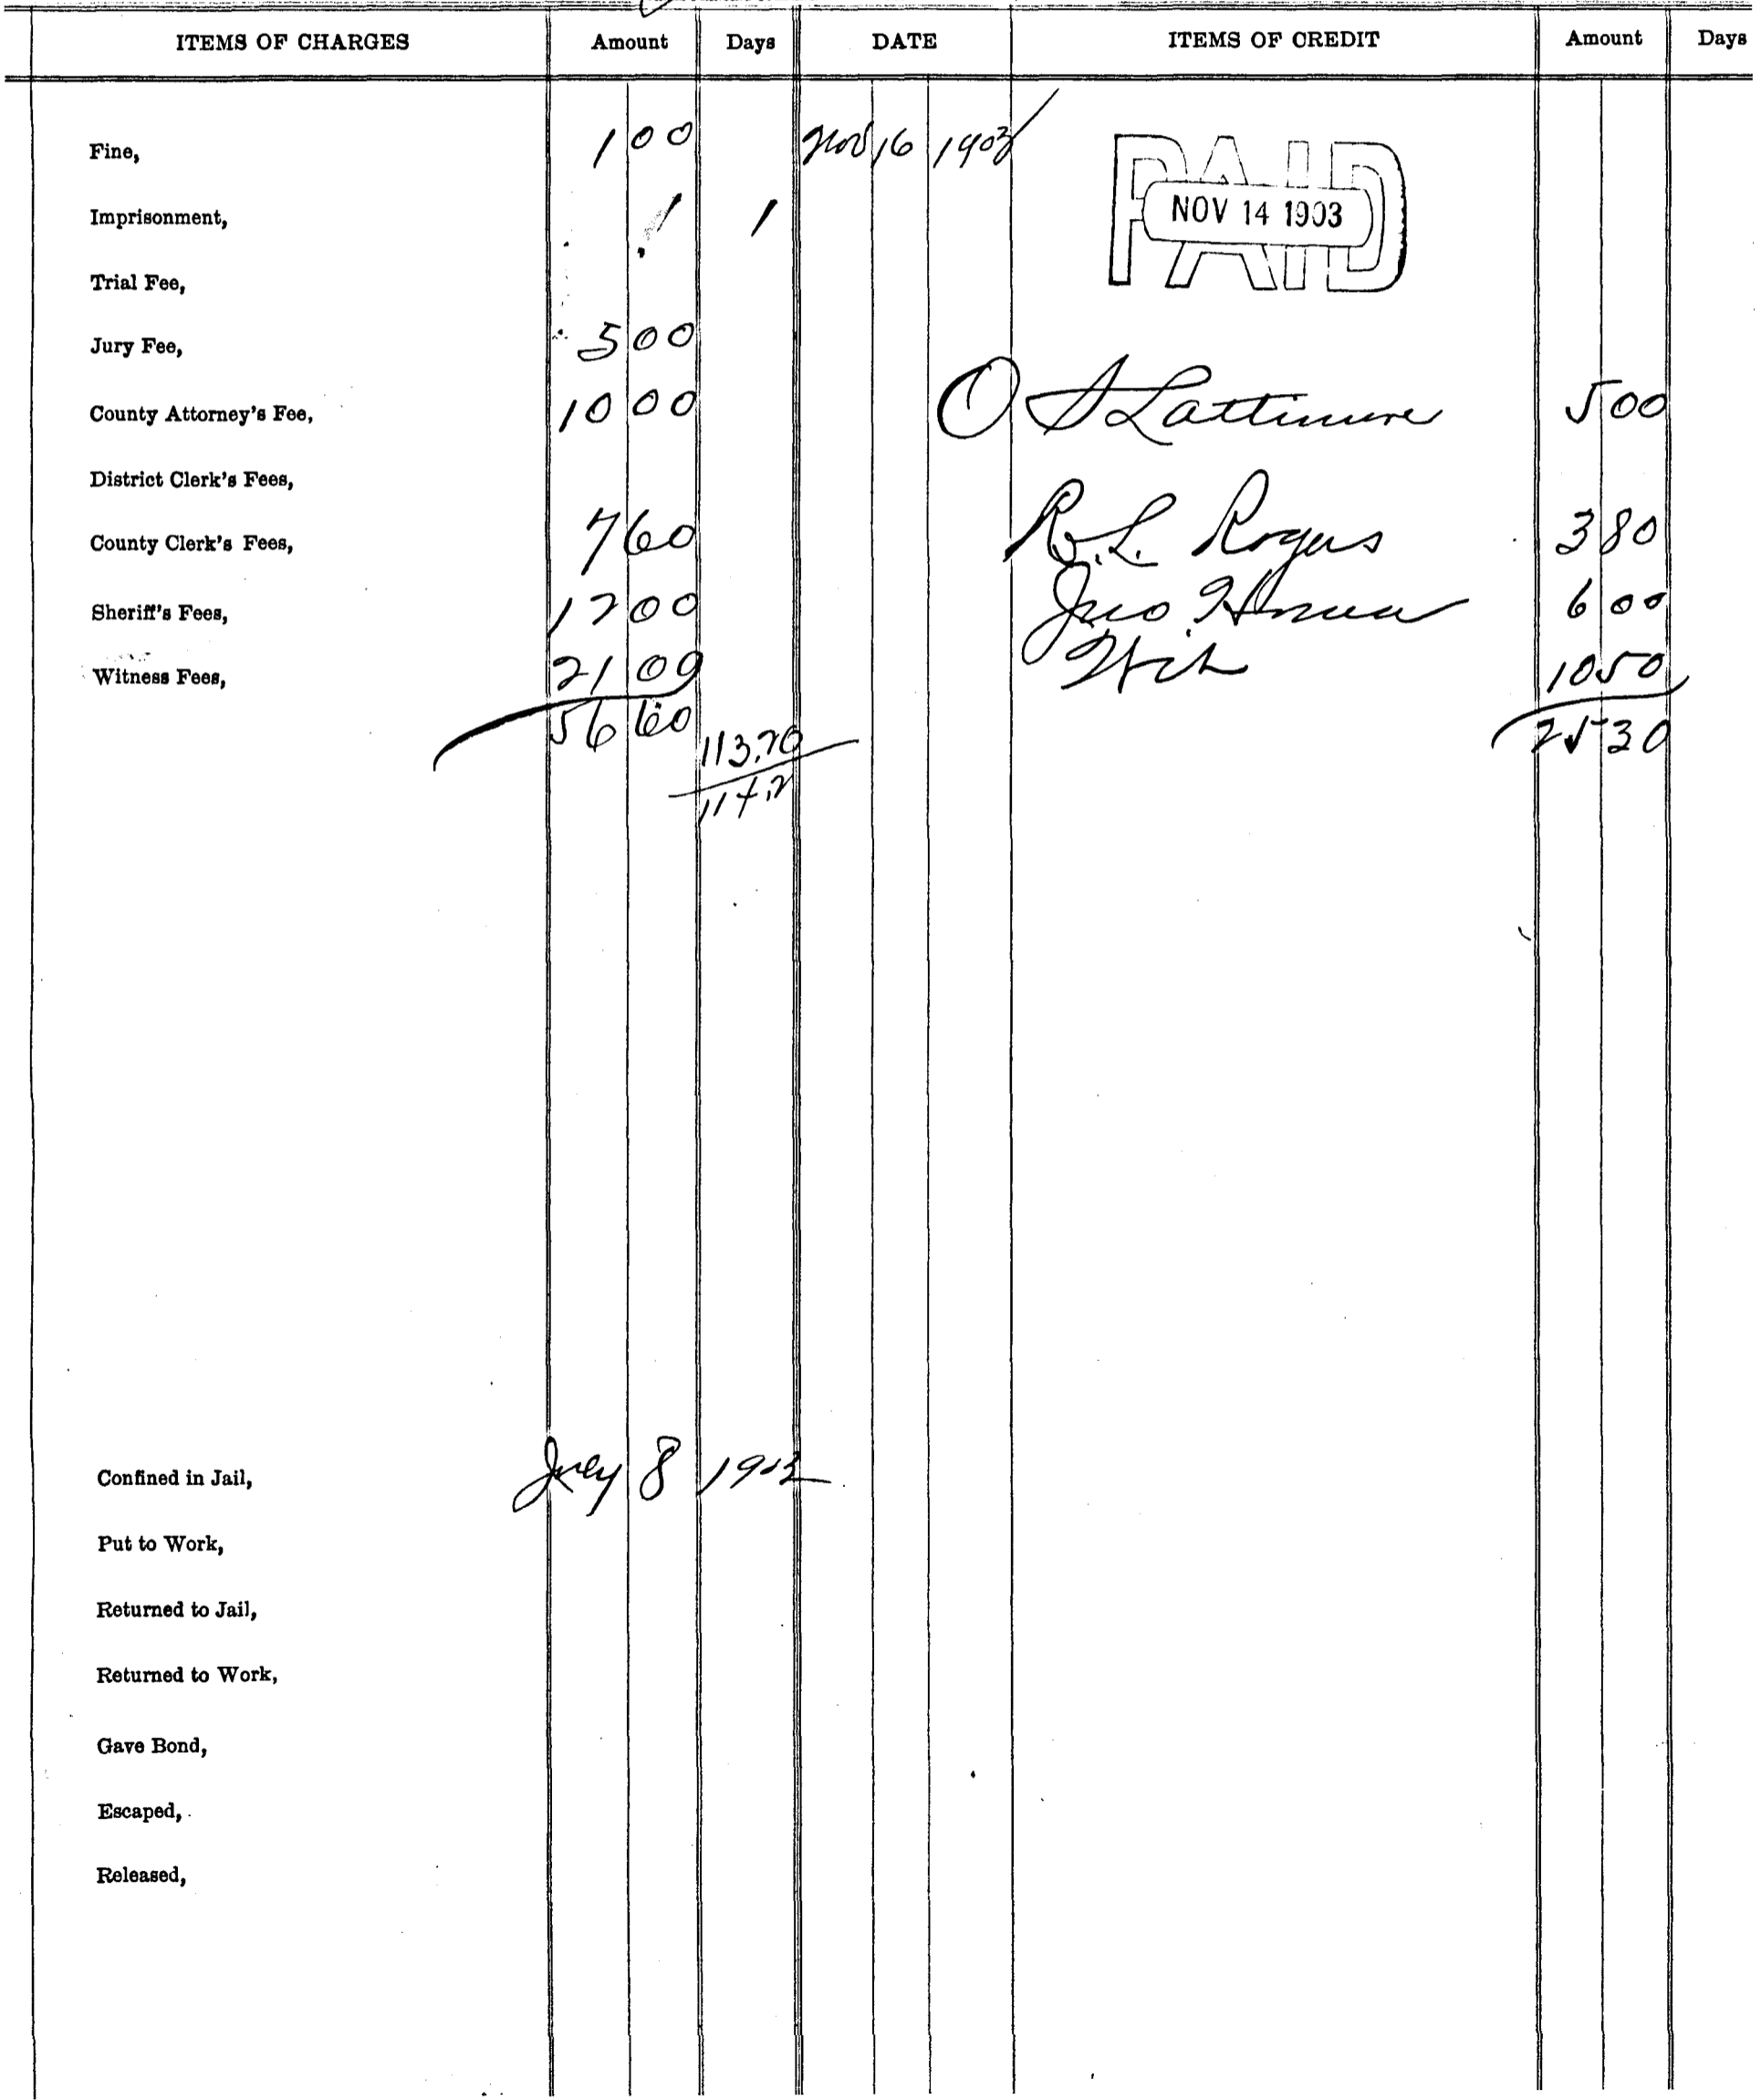 ITEMS OF CHARGES Amount Days DATE ITEMS OF CREDIT Amount Days
Fine, 1 00 Nov 16 1903
PAID
NOV 14 1903
Imprisonment, 1 1
Trial Fee,
Jury Fee, 5 00
County Attorney's Fee, 10 00 O S Lattimore 5 00
District Clerk's Fees,
County Clerk's Fees, 7 60 R.L. Rogers 3 80
Sheriff's Fees, 12 00 Jno 6 00
Witness Fees, 21 00 Wit 10 50
56 60 25 30
113.20
114.2
Confined in Jail, July 8 1903
Put to Work,
Returned to Jail,
Returned to Work,
Gave Bond,
Escaped,
Released,